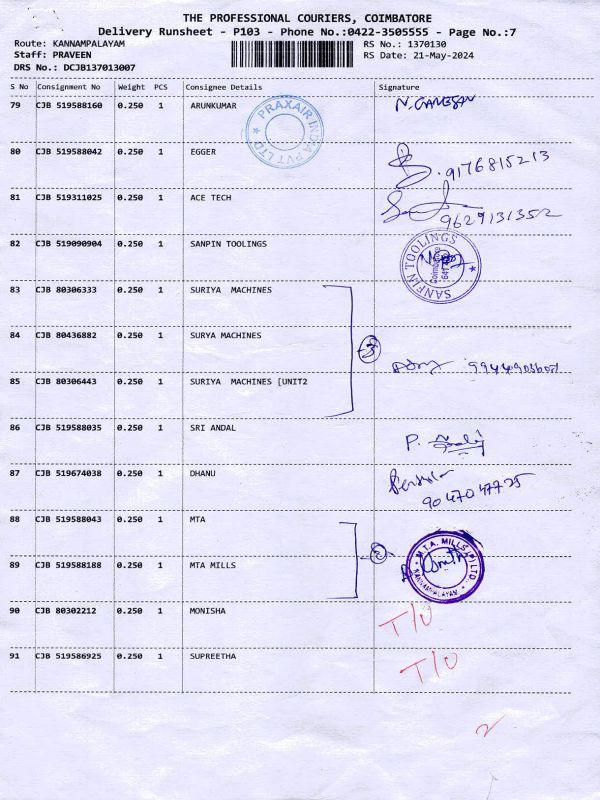 THE PROFESSIONAL COURIERS, COIMBATORE
Delivery Runsheet - P103 - Phone No.:0422-3505555 - Page No.:7
Route: KANNAMPALAYAM RS No.: 1370130
Staff: PRAVEEN RS Date: 21-May-2024
DRS No.: DCJB137013007
S No Consignment No Weight PCS Consignee Details Signature
79 CJB 519588160 0.250 1 ARUNKUMAR N. GANESAN
PRAXAIR INDIA PVT LTD
80 CJB 519588042 0.250 1 EGGER 9176815213
81 CJB 519311025 0.250 1 ACE TECH 9629131352
82 CJB 519090904 0.250 1 SANPIN TOOLINGS
SANFIN TOOLINGS Coimbatore
83 CJB 80306333 0.250 1 SURIYA MACHINES
84 CJB 80436882 0.250 1 SURYA MACHINES
3
85 CJB 80306443 0.250 1 SURIYA MACHINES [UNIT2
86 CJB 519588035 0.250 1 SRI ANDAL P.
87 CJB 519674038 0.250 1 DHANU
90470 47725
88 CJB 519588043 0.250 1 MTA
2
89 CJB 519588188 0.250 1 MTA MILLS
M.T.A. MILLS (P) LTD. KANNAMPALAYAM
90 CJB 80302212 0.250 1 MONISHA T/O
91 CJB 519586925 0.250 1 SUPREETHA T/O
2